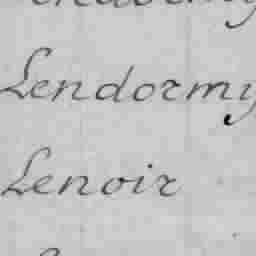 Lendormy
Lenoir